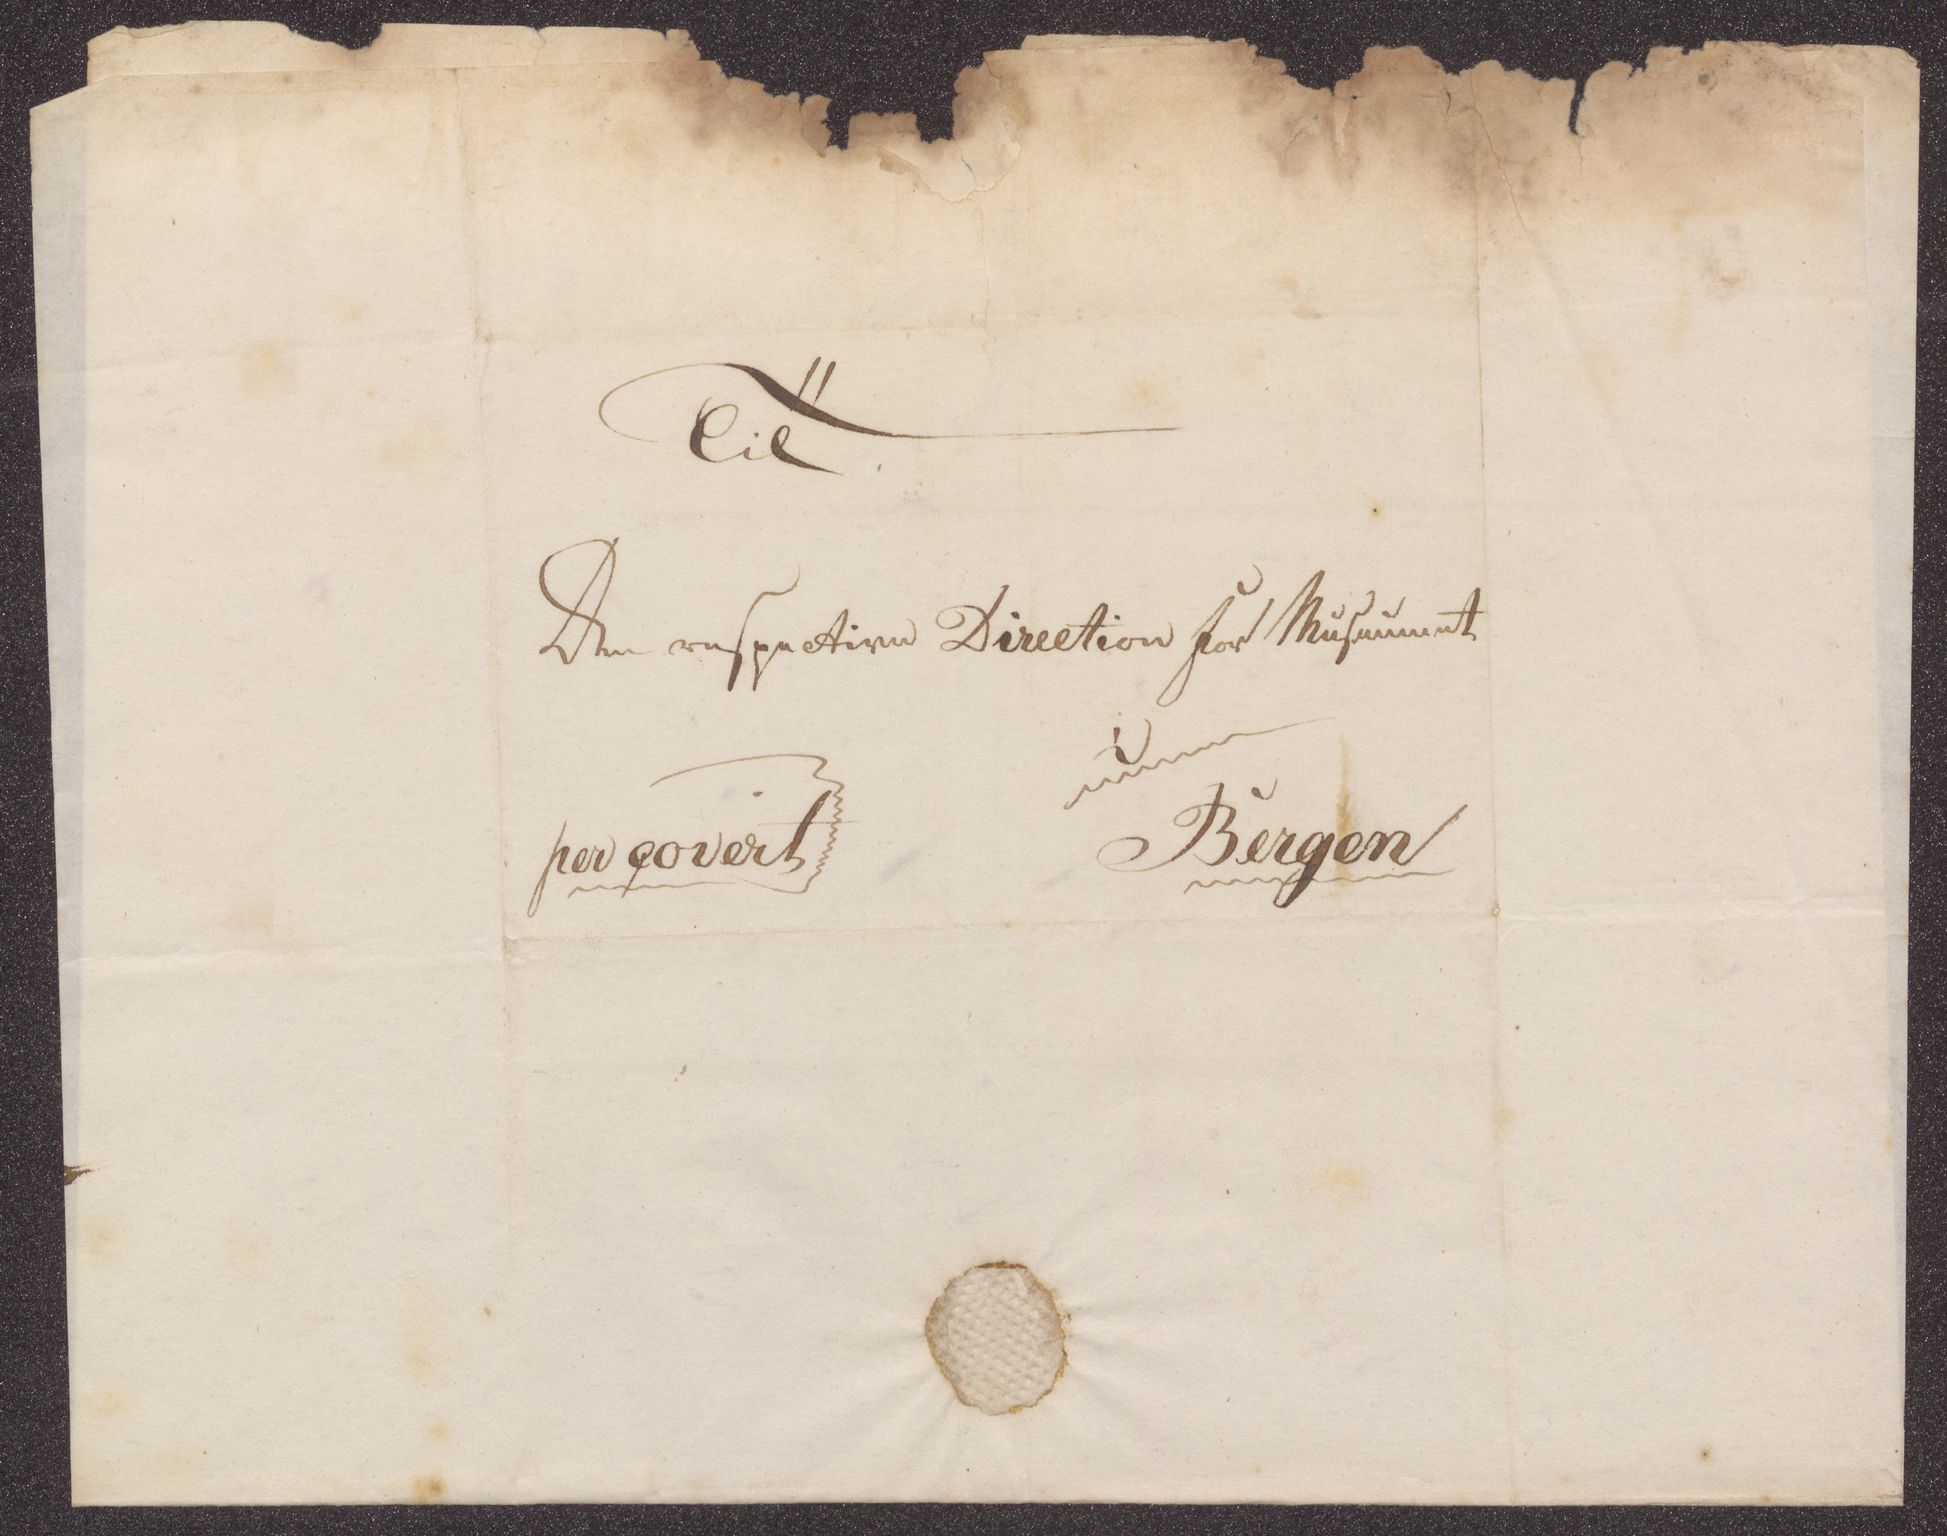 Til
Den respective Direction for Museumet
i
per covert
Bergen